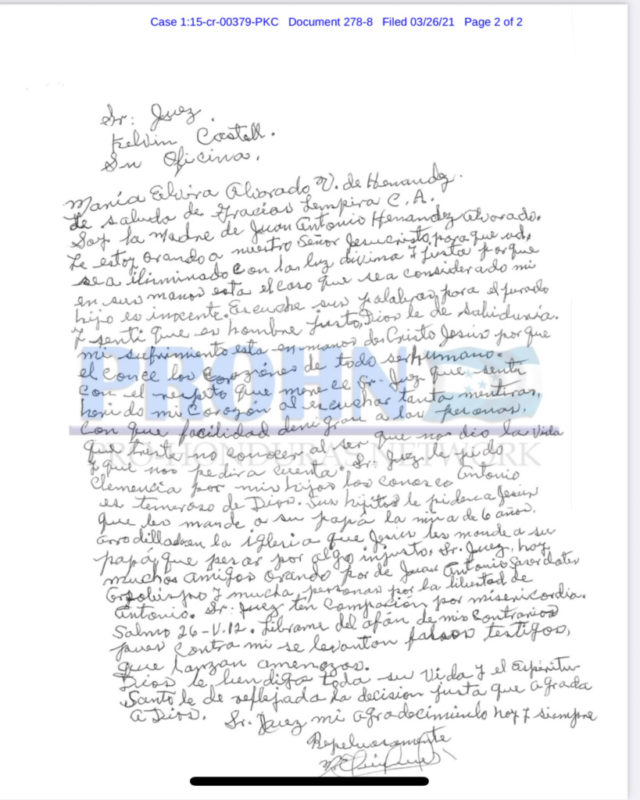 Case 1:15-cr-00379-PKC Document 278-8 Filed 03/26/21 Page 2 of 2
Sr: Juez.
Kelvin Castell.
Su Oficina.
María Elvira Alvarado V. de Hernandez.
Le saluda de Gracias Lempira C.A.
Soy la madre de Juan Antonio Hernandez Alvarado.
Le estoy orando a nuestro Señor Jesucristo, para que ud,
sea iliminado con las luz divina y justa porque
en sus manos esta el caso que sea considerado mi
hijo es inocente. Escuche sus palabras para el jurado
y senti que es hombre justo, Dios le de sabiduria.
mi sufrimiento esta en manos de Cristo Jesus porque
el conce los corazones de todo ser humano.
con el respeto que merece Sr. Juez que senti
herido mi corazón al escuchar tanta mentiras,
con que facilidad denigran a las personas.
PROHN
HONDURAS NETWORK
que triste no conocer al ser que nos dio la vida
y que nos pedira cuenta. Sr. Juez le pido
clemencia por mis hijos los conosco Antonio
es temeroso de Dios. Sus hijitos le piden a Jesus
que les mande a su papá la niña de 6 años.
arrodillada en la iglesia que Jesus les mande a su
papá, que pesar por algo injusto. Sr. Juez, hay
muchos amigos orando por de Juan Antonio Sacerdotes
y mucha personas por la libertad de
Antonio. Sr. Juez ten compasion por misericordia.
Salmo 26-V.12. Librame del afán de mis contrarios
pues contra mi se levantan falsos testigos,
que lanzan amenazas.
Dios le bendiga toda su vida y el Espiritu
Santo le de reflejada la decision justa que agrada
a Dios. Sr. Juez mi agradecimiento hoy y siempre